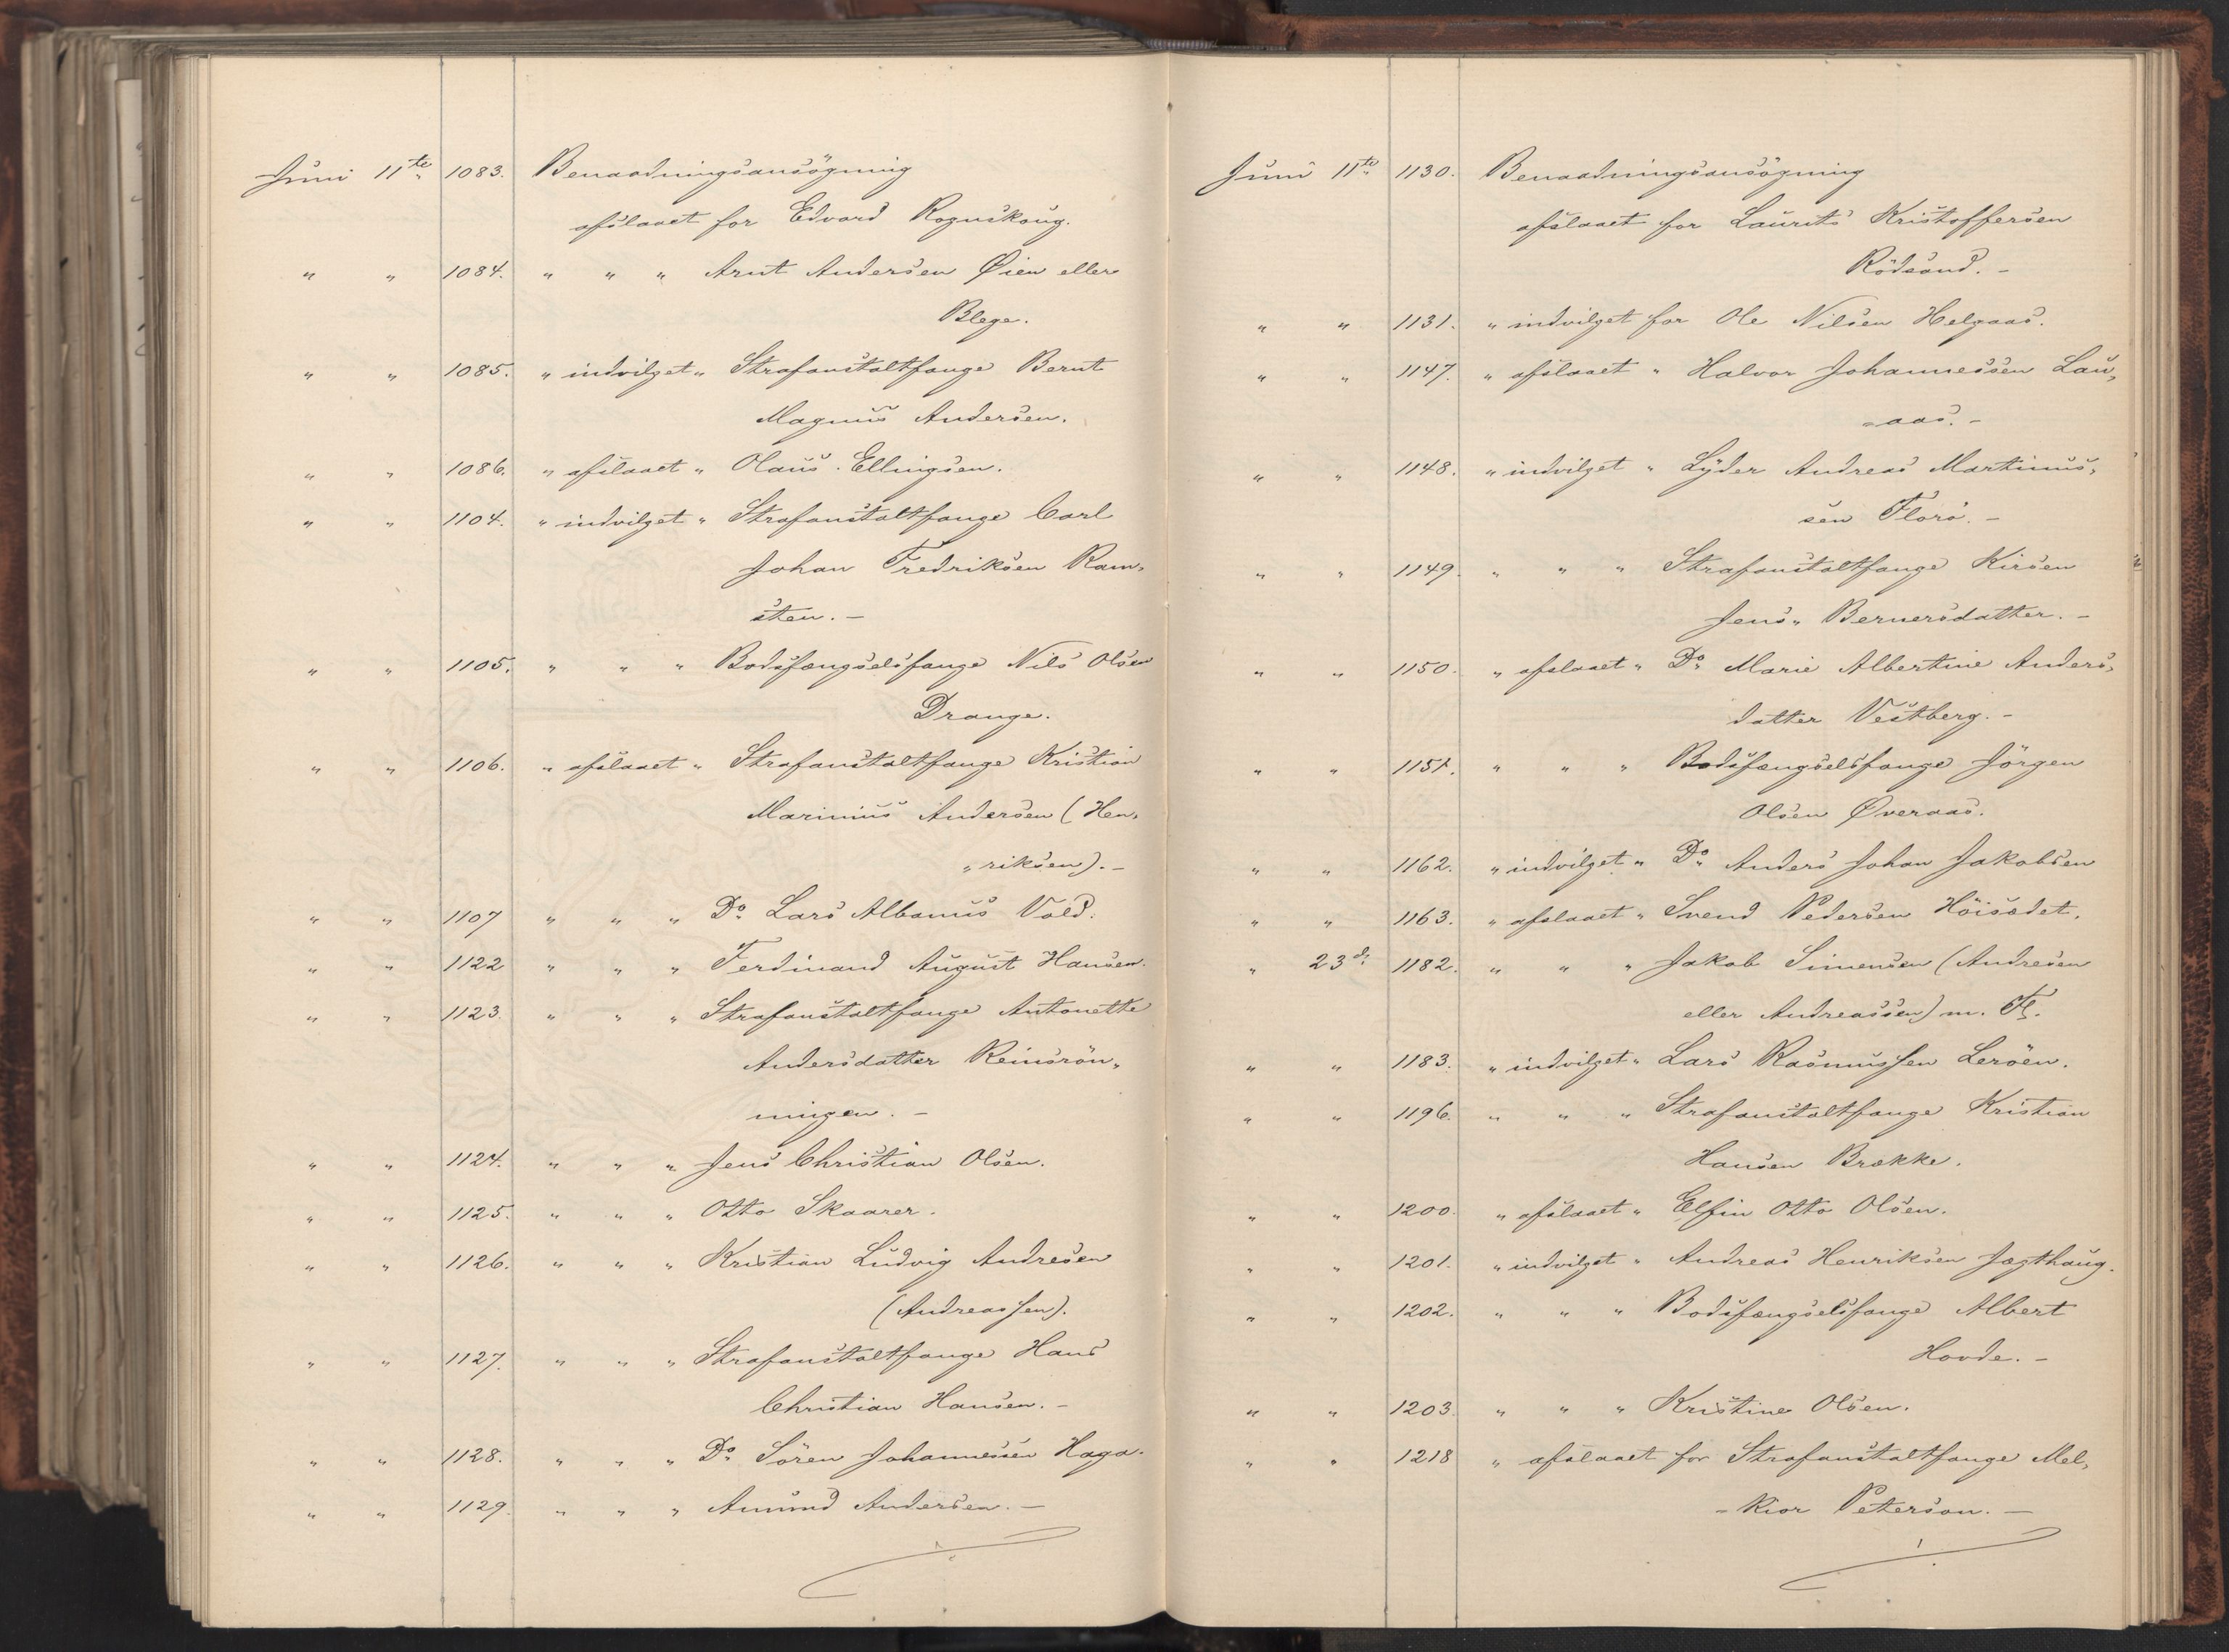 Juni 11te 1083. Benaadningsansögning
afslaaet for Edvard Rognskoug.
" " 1084. " " " Arnt Andersen Øien eller
Blege.
" " 1085. " indvilget " Strafanstaltfange Bernt
Magnus Andersen.
" " 1086. " afslaaet " Olaus Ellingsen.
" " 1104. " indvilget " Strafanstaltfange Carl
Johan Fredriksen Ram„
sten. –
" " 1105. " " " Bodsfængselsfange Nils Olsen
Drange.
" " 1106. " afslaaet " Strafanstaltfange Kristian
Marinius Andersen (Hen„
„riksen). –
" " 1107 " " " Do Lars Albanus Vold.
" " 1122 " " " Ferdinand August Hansen.
" " 1123. " " " Strafanstaltfange Antonette
Andersdatter Reinsrön„
ningen. –
" " 1124. " " " Jens Christian Olsen.
" " 1125. " " " Otto Skaarer.
" " 1126. " " " Kristian Ludvig Andresen
(Andreassen).
" " 1127. " " " Strafanstaltfange Hans
Christian Hansen. –
" " 1128. " " " Do Sören Johannessen Haga.
" " 1129. " " " Amund Andersen. –
Juni 11te 1130. Benaadningsansögning
afslaaet for Laurits Kristoffersen
Rödsand. –
" " 1131. " indvilget for Ole Nilsen Helgaas.
" " 1147. " afslaaet " Halvor Johannessen Lau„
„aas. –
" " 1148. " indvilget " Lyder Andreas Martinus„
sen Florö. –
" " 1149. " " " Strafanstaltfange Kirsen
Jens„ Bernersdatter. –
" " 1150. " afslaaet " Do Marie Albertine Anders„
datter Vestberg. –
" " 1151. " " " Bodsfængselsfange Jörgen
Olsen Øveraas.
" " 1162. " indvilget " Do Anders Johan Jakobsen
" " 1163. " afslaaet " Svend Pedersen Höisædet.
" 23de 1182. " " " Jakob Simensen (Andresen
eller Andreassen) m. Fl.
" " 1183. " indvilget " Lars Rasmussen Leröen.
" " 1196. " " " Strafanstaltfange Kristian
Hansen Brække.
" " 1200. " afslaaet " Elfin Otto Olsen.
" " 1201. " indvilget " Andreas Henriksen Jægthaug.
" " 1202. " " " Bodsfængselsfange Albert
Hovde. –
" " 1203. " " " Kristine Olsen.
" " 1218 " afslaaet for Strafanstaltfange Mel„
„kior Peterson. –